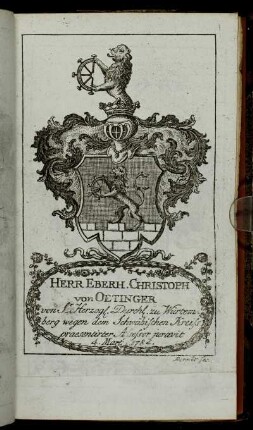 HERR EBERH. CHRISTOPH
von OETINGER
von Sr. Herzogl. Durchl. zu Würtem-
berg wegen dem Schwäbischen Kreiss
praesentirter Assessor juravit
4. Mart. 1782.